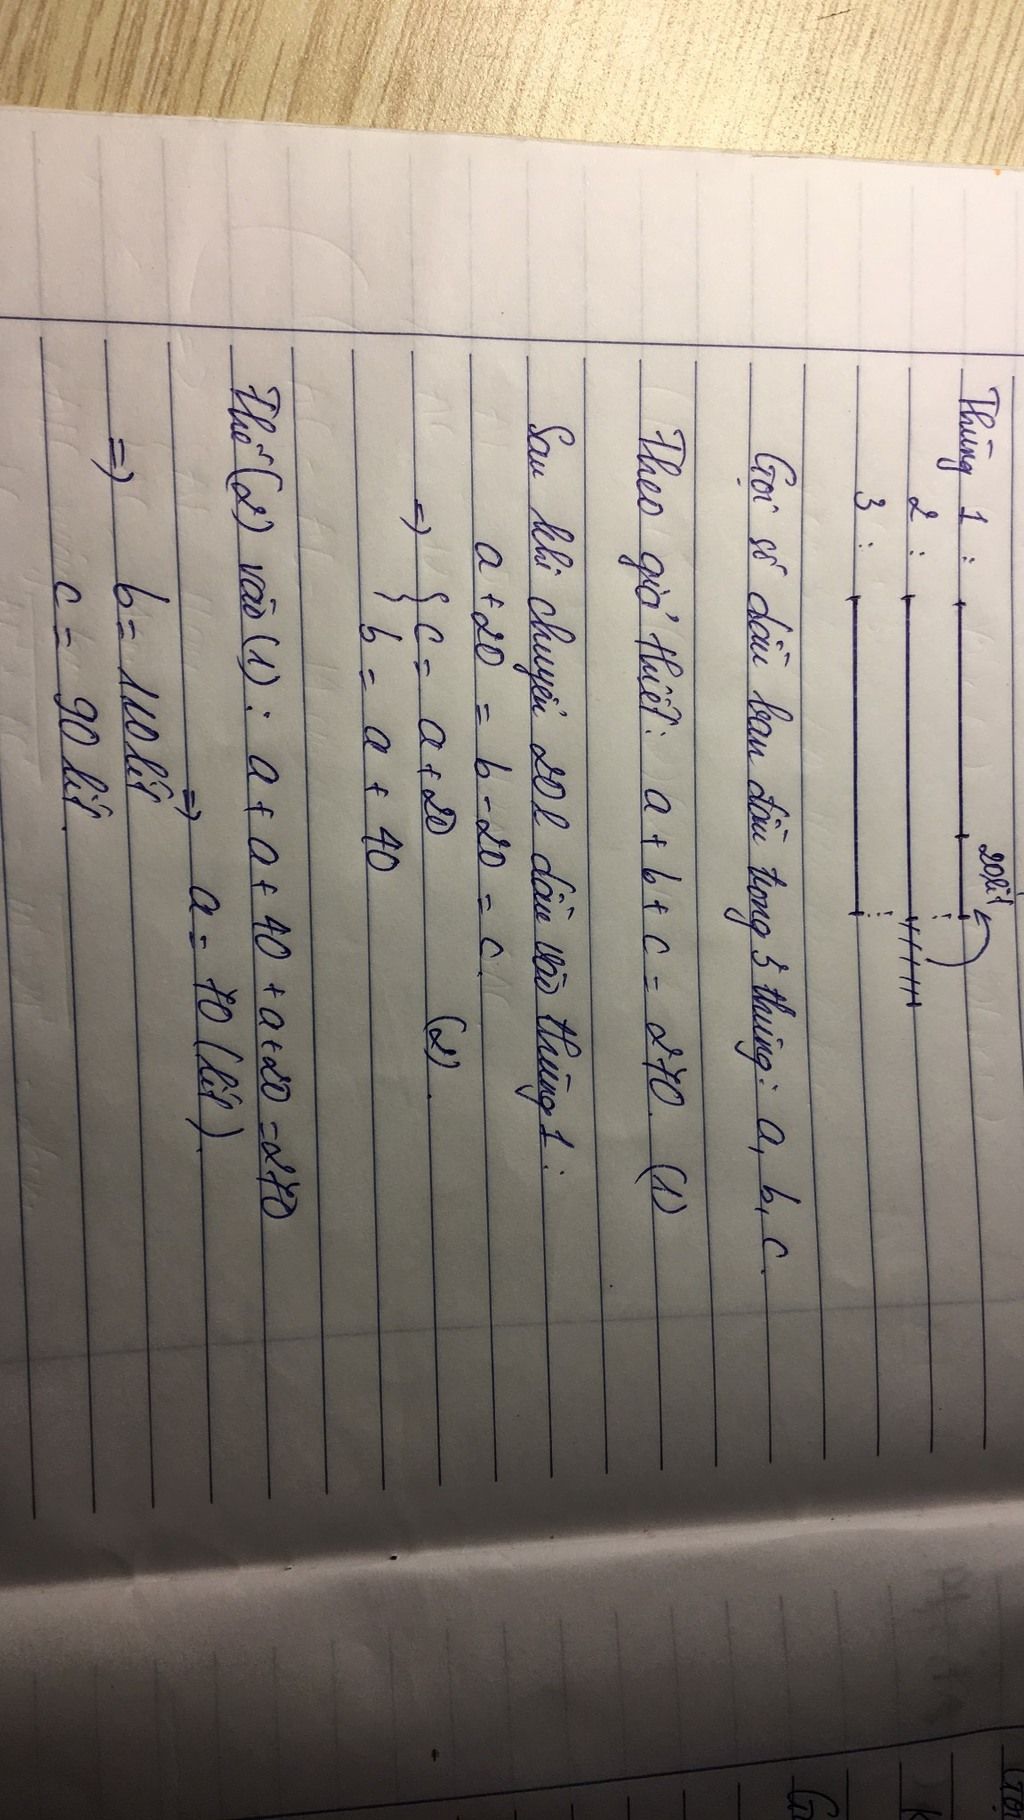 20lít
Thùng 1 :
2 :
3 :
Gọi số dầu ban đầu trong 3 thùng: a, b, c.
Theo giả thiết: a + b + c = 270. (1)
Sau khi chuyển 20l dầu vào thùng 1 :
a + 20 = b - 20 = c.
=> { c = a + 20 (2).
b = a + 40
Thế (2) vào (1) : a + a + 40 + a + 20 = 270
=> a = 70 (lít).
=> b = 110 lít
c = 90 lít.